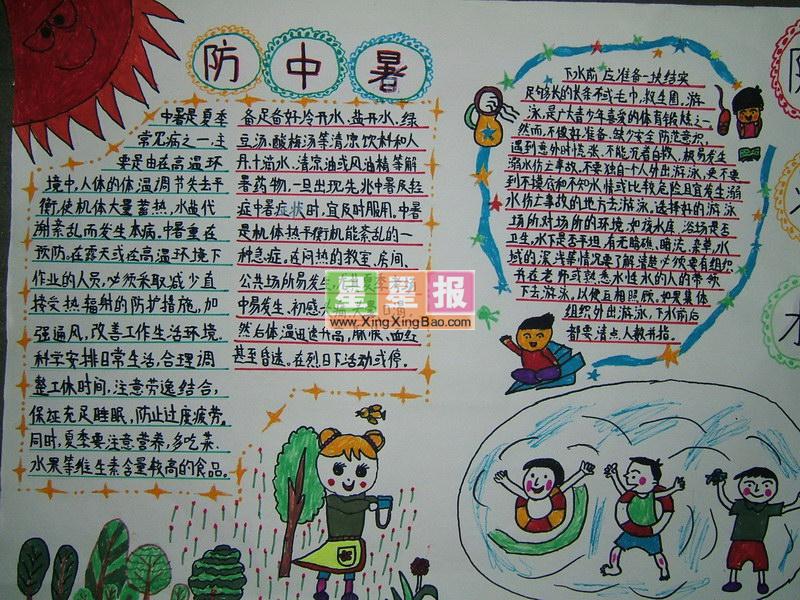 防中暑
中暑是夏季
常见病之一,主
要是由在高温环
境中,人体的体温调节失去平
衡,使机体大量蓄热,水盐代
谢紊乱而发生本病,中暑重在
预防。在露天或在高温环境下
作业的人员,必须采取减少直
接受热辐射的防护措施,加
强通风,改善工作生活环境。
科学安排日常生活,合理调
整工休时间,注意劳逸结合,
保证充足睡眠,防止过度疲劳。
同时,夏季要注意营养,多吃菜、
水果等维生素含量较高的食品。
备足备好冷开水、盐开水、绿
豆汤、酸梅汤等清凉饮料和人
丹十滴水、清凉油或风油精等解
暑药物,一旦出现先兆中暑及轻
症中暑症状时,宜及时服用。中暑
是机体热平衡机能紊乱的一
种急症。在闷热的教室、房间、
公共场所易发生,
中易发,初感
然后体温迅速升高,脉候、血红
甚至昏迷。在烈日下活动或停。
星星报
www.XingXingBao.com
下水前应准备一块结实
足够长的长条布或毛巾,救生圈,游
泳,是广大青少年喜爱的体育锻炼之一
然而,不做好准备、缺少安全防范意识,
遇到意外时慌张、不能沉着自救,极易发生
溺水伤亡事故,不要独自一个人外出游泳,更不要
到不摸底和不知水情或比较危险且宜发生溺
水伤亡事故的地方去游泳,选择好的游泳
场所,对场所的环境,如该水库、浴场是否
卫生,水下是否平坦,有无暗礁、暗流、杂草,水
域的深浅等情况要了解清楚必须要有组织
并在老师或熟悉水性的人的带领
下去游泳,以便互相照顾,如果集体
组织外出游泳,下水前后
都要清点人数
水